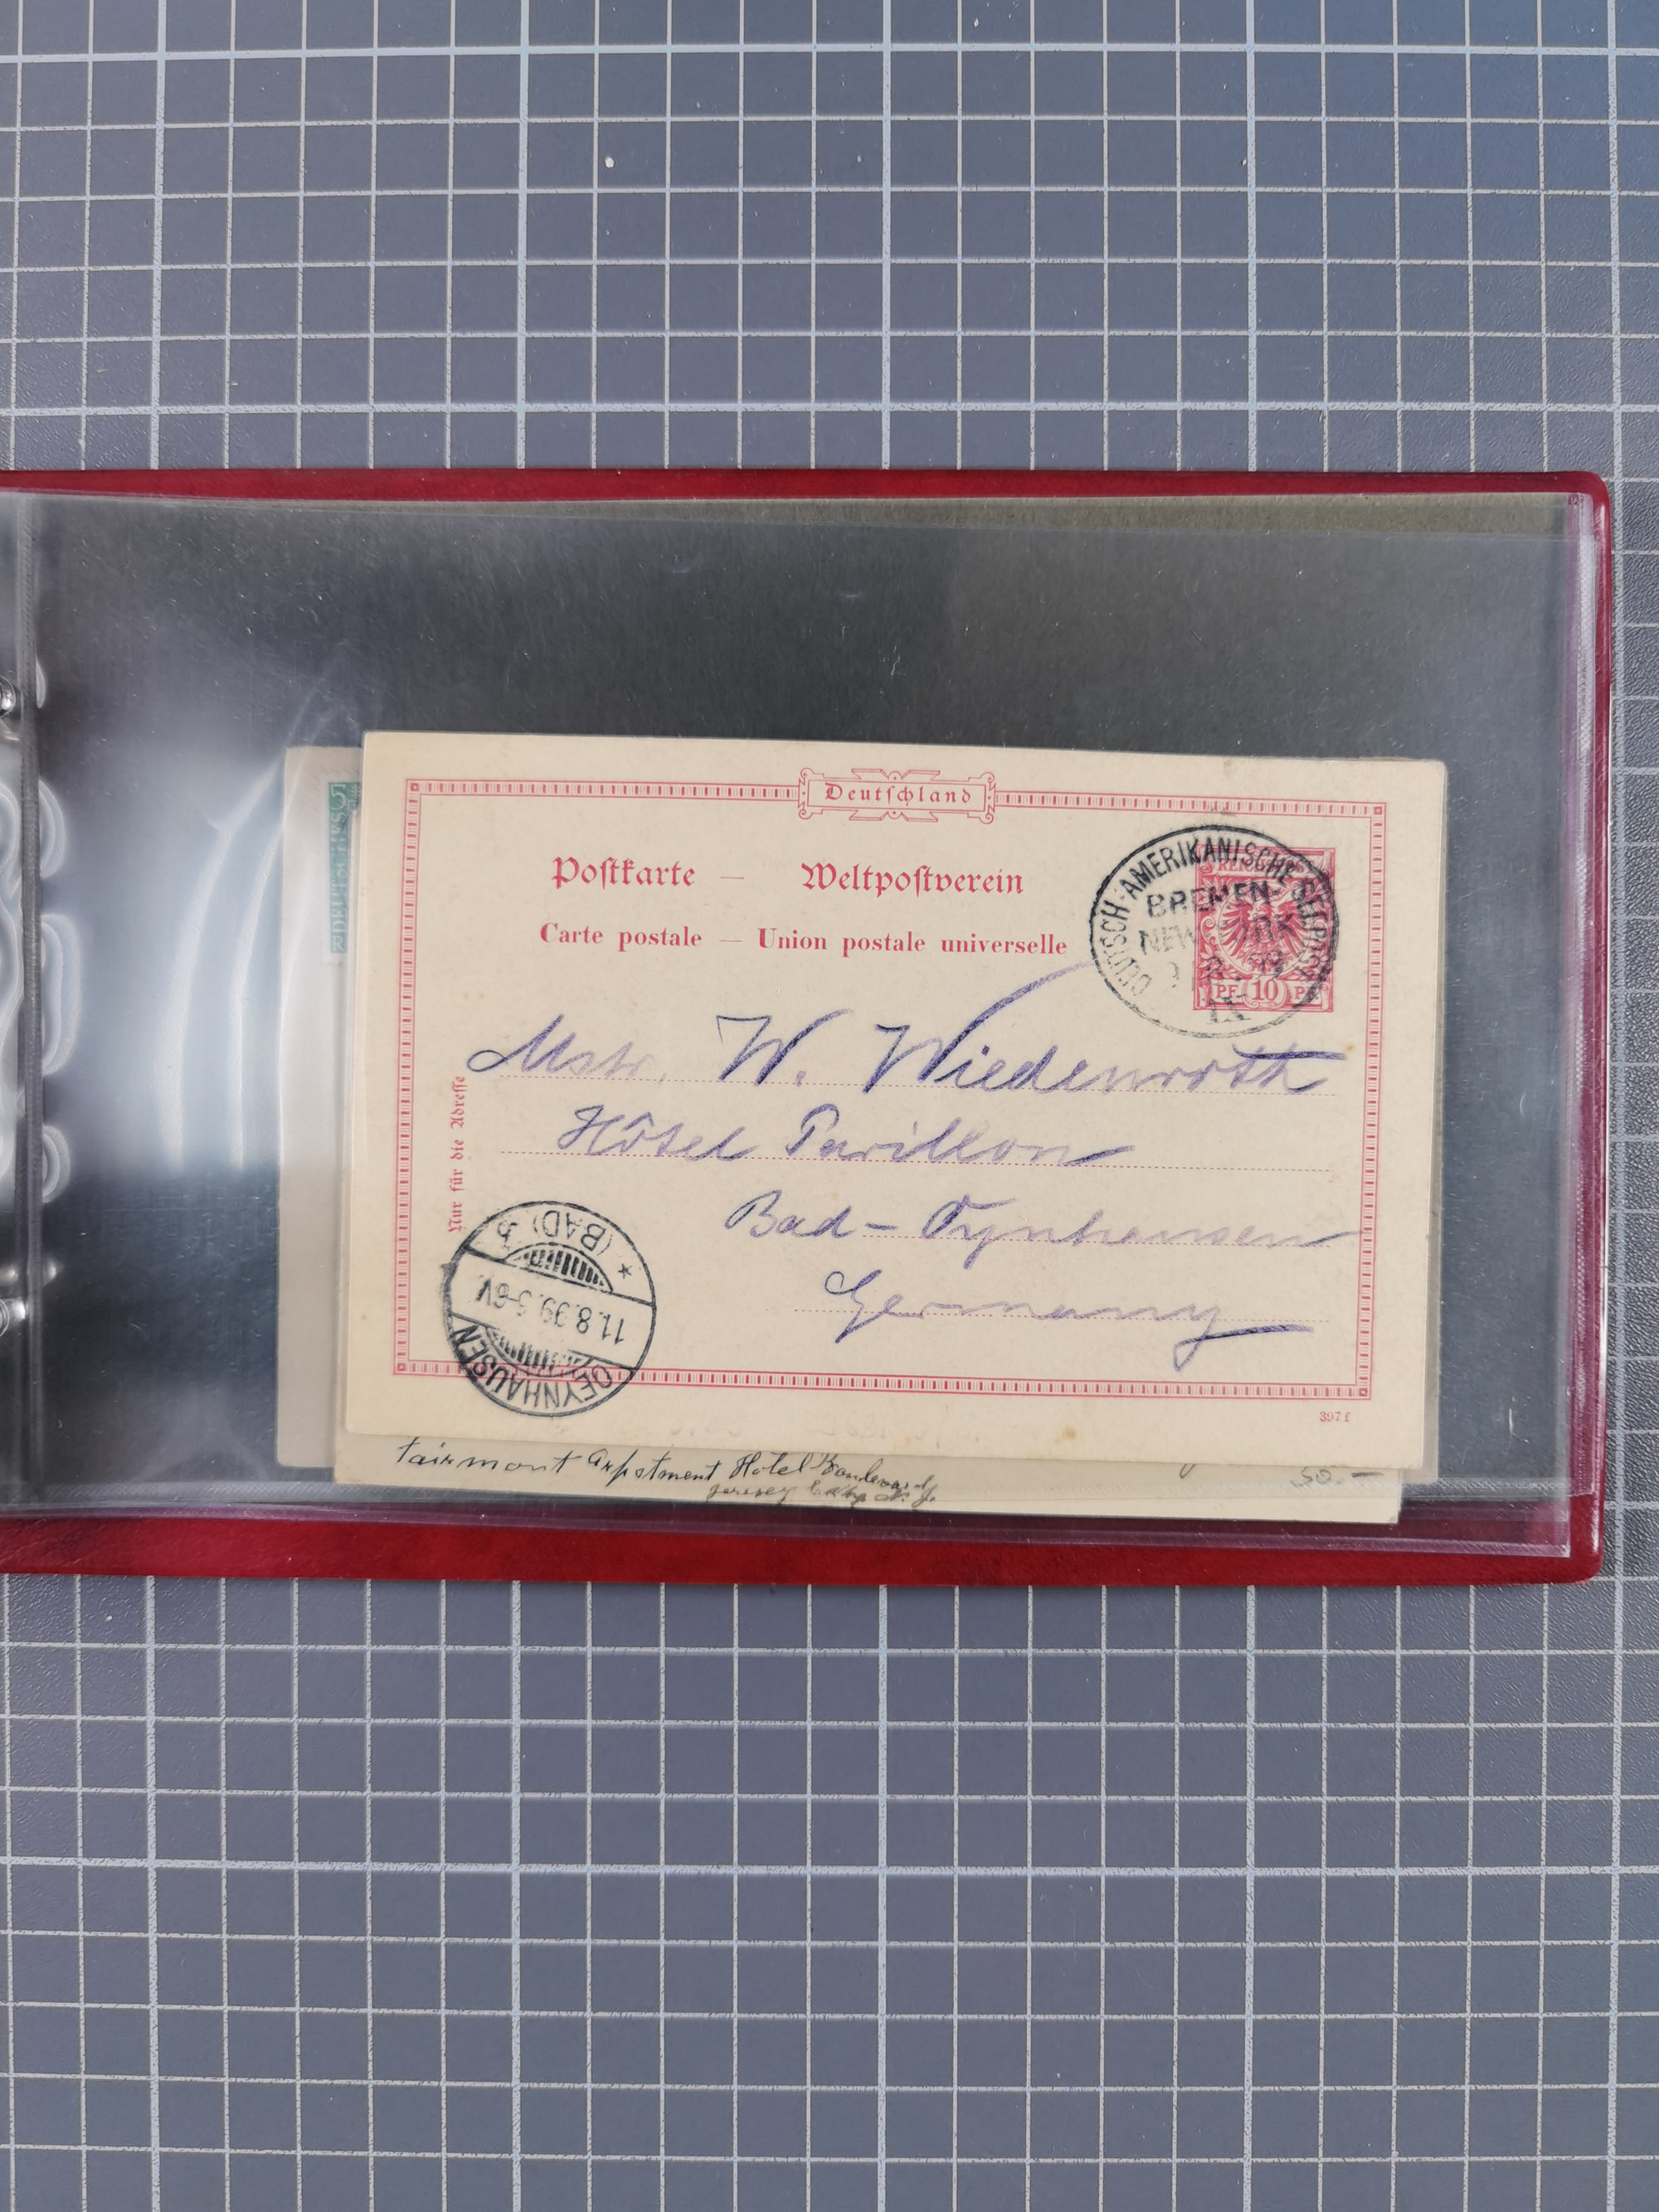 Deutschland
Postkarte — Weltpostverein
Carte postale — Union postale universelle
DEUTSCH-AMERIKANISCHE SEEPOST
BREMEN-
NEW YORK
99
REICHSPOST
PF 10 PF
Mstr. W. Wiedenroth
Hôtel Pavillon
Bad-Oynhausen
Germany
Nur für die Adresse
OEYNHAUSEN
11.8.99.5-6V.
(BAD)
397f
Fairmont Arpstment Hotel Boulevard
Jersey City N.J.
50.—
5
DEUTSCHES R